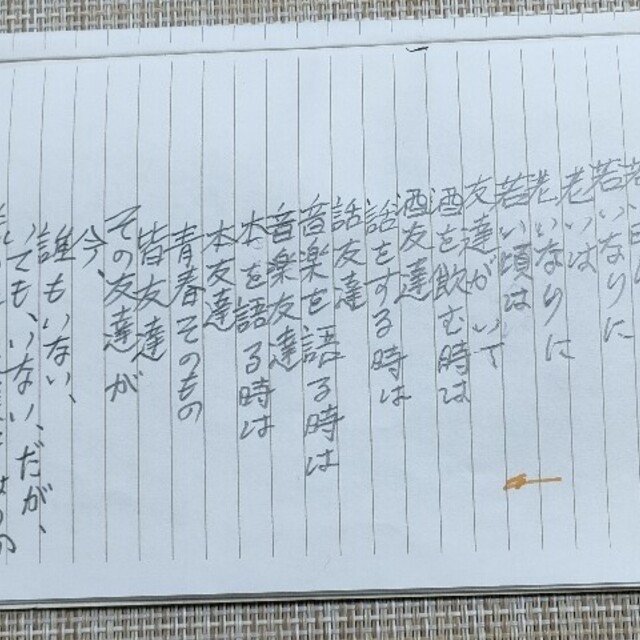 若いなりに
老いは
老いなりに
若い頃は
友達がいて
酒を飲む時は
酒友達
話をする時は
話友達
音楽を語る時は
音楽友達
本を語る時は
本友達
青春そのもの
皆友達
その友達が
今、
誰もいない、
いても、いない、だが、